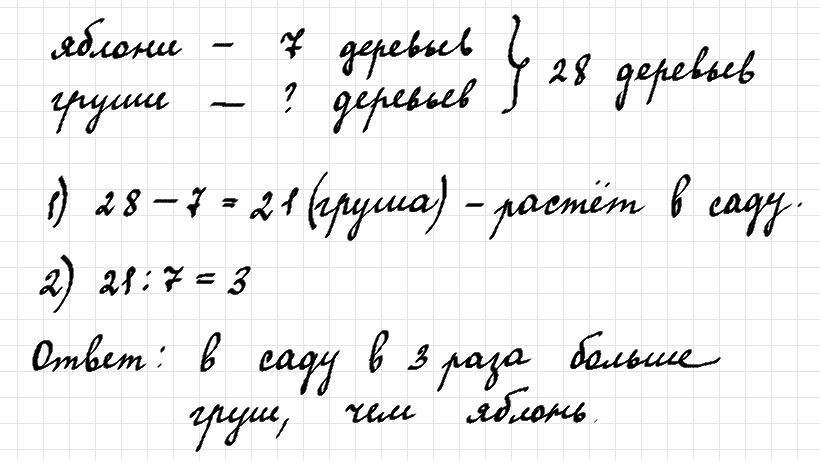 яблони - 7 деревьев } 28 деревьев
груши — ? деревьев
1) 28 - 7 = 21 (груша) - растёт в саду.
2) 21 : 7 = 3
Ответ: в саду в 3 раза больше
груш, чем яблонь.